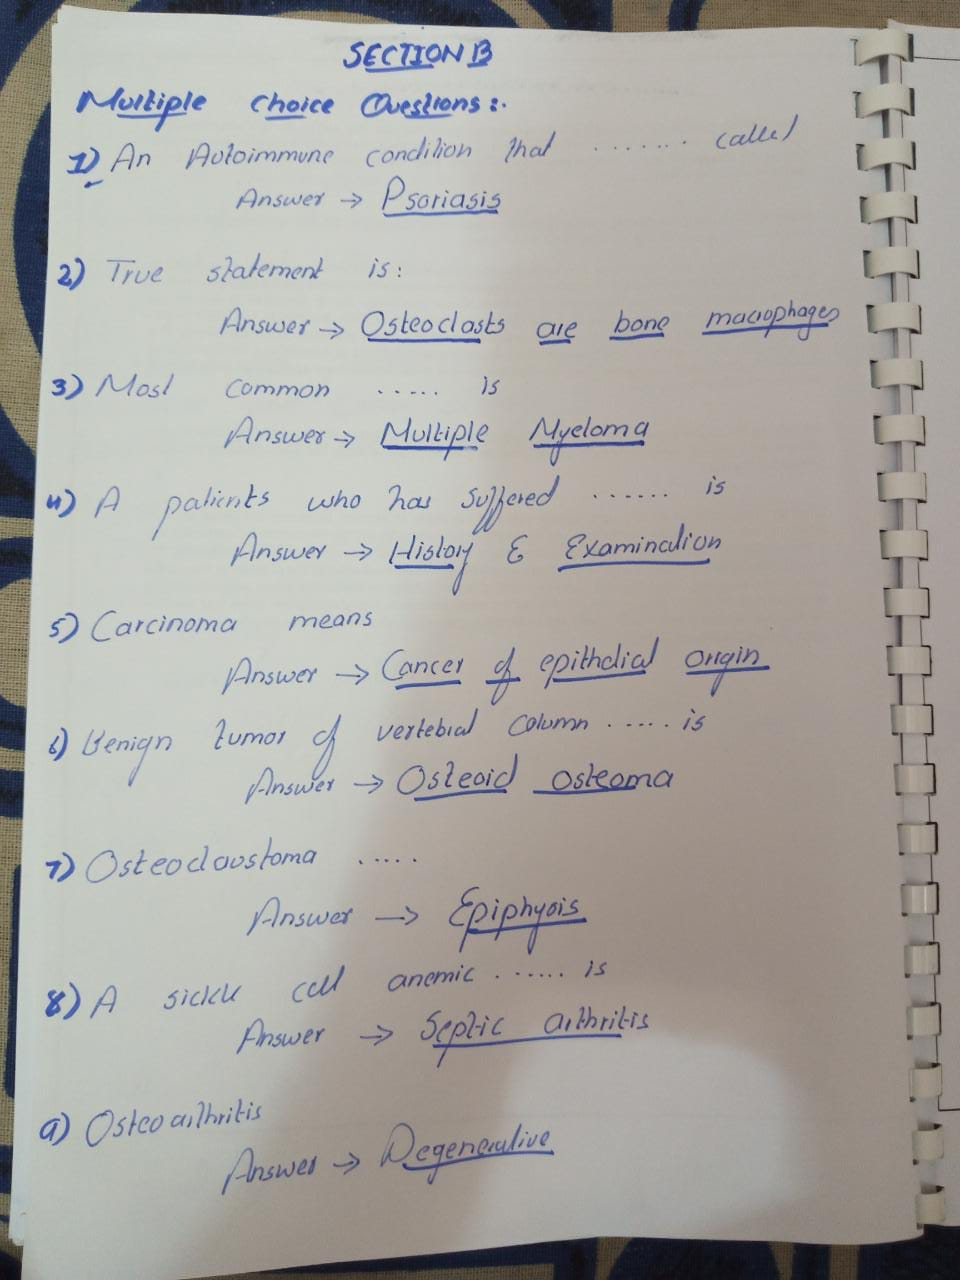 SECTION B
Multiple choice Questions:-
1) An Autoimmune condition that ....... called
Answer → Psoriasis
2) True statement is:
Answer → Osteoclasts are bone macrophages
3) Most common ..... is
Answer → Multiple Myeloma
4) A patients who has suffered ...... is
Answer → History & Examination
5) Carcinoma means
Answer → Cancer of epithelial origin
6) Benign tumor of vertebral column ..... is
Answer → Osteoid osteoma
7) Osteoclaustoma .....
Answer → Epiphysis
8) A sickle cell anemic ...... is
Answer → Septic arthritis
9) Osteoarthritis
Answer → Degenerative